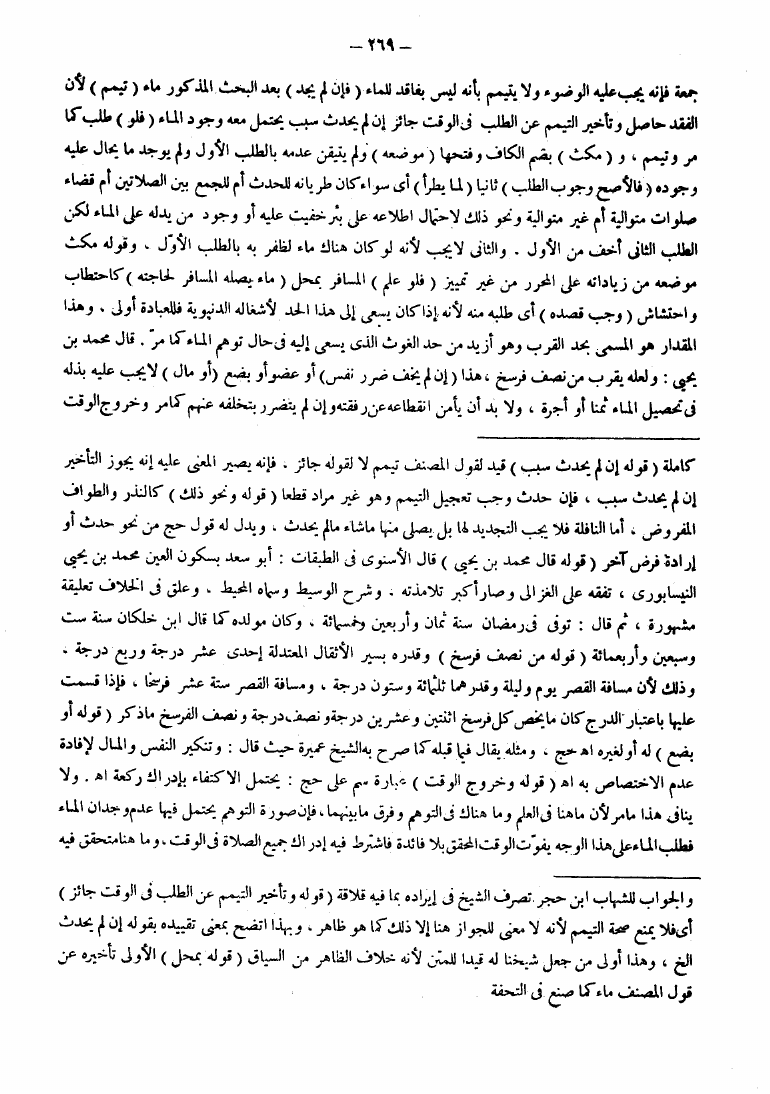 — ٢٦٩ —
جمعة فإنه يجب عليه الوضوء ولا يتيمم بأنه ليس بفاقد للماء ( فإن لم يجد ) بعد البحث المذكور ماء ( تيمم ) لأن
الفقد حاصل وتأخير التيمم عن الطلب فى الوقت جائز إن لم يحدث سبب يحتمل معه وجود الماء ( فلو ) طلب كما
مر وتيمم ، و ( مكث ) بضم الكاف وفتحها ( موضعه ) ولم يتيقن عدمه بالطلب الأول ولم يوجد ما يحال عليه
وجوده ( فالأصح وجوب الطلب ) ثانيا ( لما يطرأ ) أى سواء كان طريانه للحدث أم للجمع بين الصلاتين أم قضاء
صلوات متوالية أم غير متوالية ونحو ذلك لاحتمال اطلاعه على بئر خفيت عليه أو وجود من يدله على الماء لكن
الطلب الثانى أخف من الأول . والثانى لايجب لأنه لو كان هناك ماء لظفر به بالطلب الأوّل . وقوله مكث
موضعه من زياداته على المحرر من غير تمييز ( فلو علم ) المسافر بمحل ( ماء يصله المسافر لحاجته ) كاحتطاب
واحتشاش ( وجب قصده ) أى طلبه منه لأنه إذا كان يسعى إلى هذا الحد لأشغاله الدنيوية فللعبادة أولى . وهذا
المقدار هو المسمى بحد القرب وهو أزيد من حد الغوث الذى يسعى إليه فى حال توهم الماء كما مرّ . قال محمد بن
يحيى : ولعله يقرب من نصف فرسخ ، هذا ( إن لم يخف ضرر نفس ) أو عضو أو بضع ( أو مال ) لا يجب عليه بذله
فى تحصيل الماء ثمنا أو أجرة ، ولا بد أن يأمن انقطاعه عن رفقته وإن لم يتضرر بتخلفه عنهم كما مر وخروج الوقت
كاملة ( قوله إن لم يحدث سبب ) قيد لقول المصنف تيمم لا لقوله جائز ، فإنه يصير المعنى عليه إنه يجوز التأخير
إن لم يحدث سبب ، فإن حدث وجب تعجيل التيمم وهو غير مراد قطعا ( قوله ونحو ذلك ) كالنذر والطواف
المفروض ، أما النافلة فلا يجب التجديد لها بل يصلى منها ماشاء مالم يحدث ، ويدل له قول حج من نحو حدث أو
إرادة فرض آخر ( قوله قال محمد بن يحيى ) قال الأسنوى فى الطبقات : أبو سعد بسكون العين محمد بن يحيى
النيسابورى ، تفقه على الغزالى وصار أكبر تلامذته ، وشرح الوسيط وسماه المحيط ، وعلق فى الخلاف تعليقة
مشهورة ، ثم قال : توفى فى رمضان سنة ثمان وأربعين وخمسمائة . وكان مولده كما قال ابن خلكان سنة ست
وسبعين وأربعمائة ( قوله من نصف فرسخ ) وقدره بسير الأثقال المعتدلة إحدى عشر درجة وربع درجة ،
وذلك لأن مسافة القصر يوم وليلة وقدرهما ثلثمائة وستون درجة ، ومسافة القصر ستة عشر فرسخا ، فإذا قسمت
عليها باعتبار الدرج كان ما يخص كل فرسخ اثنتين وعشرين درجة ونصف درجة ونصف الفرسخ ماذكر ( قوله أو
بضع ) له أو لغيره اه حج ، ومثله يقال فيما قبله كما صرح به الشيخ عميرة حيث قال : وتنكير النفس والمال لإفادة
عدم الاختصاص به اه ( قوله وخروج الوقت ) عبارة سم على حج : يحتمل الاكتفاء بإدراك ركعة اه . ولا
ينافى هذا مامر لأن ماهنا فى العلم وما هناك فى التوهم وفرق مابينهما ، فإن صورة التوهم يحتمل فيها عدم وجدان الماء
فطلب الماء على هذا الوجه يفوّت الوقت المحقق بلا فائدة فاشترط فيه إدراك جميع الصلاة فى الوقت ، وما هنا متحقق فيه
والجواب للشهاب ابن حجر تصرف الشيخ فى إيراده بما فيه قلاقة ( قوله وتأخير التيمم عن الطلب فى الوقت جائز )
أى فلا يمنع صحة التيمم لأنه لا معنى للجواز هنا إلا ذلك كما هو ظاهر ، وبهذا اتضح بمعنى تقييده بقوله إن لم يحدث
الخ ، وهذا أولى من جعل شيخنا له قيدا للمتن لأنه خلاف الظاهر من السياق ( قوله بمحل ) الأولى تأخيره عن
قول المصنف ماء كما صنع فى التحفة